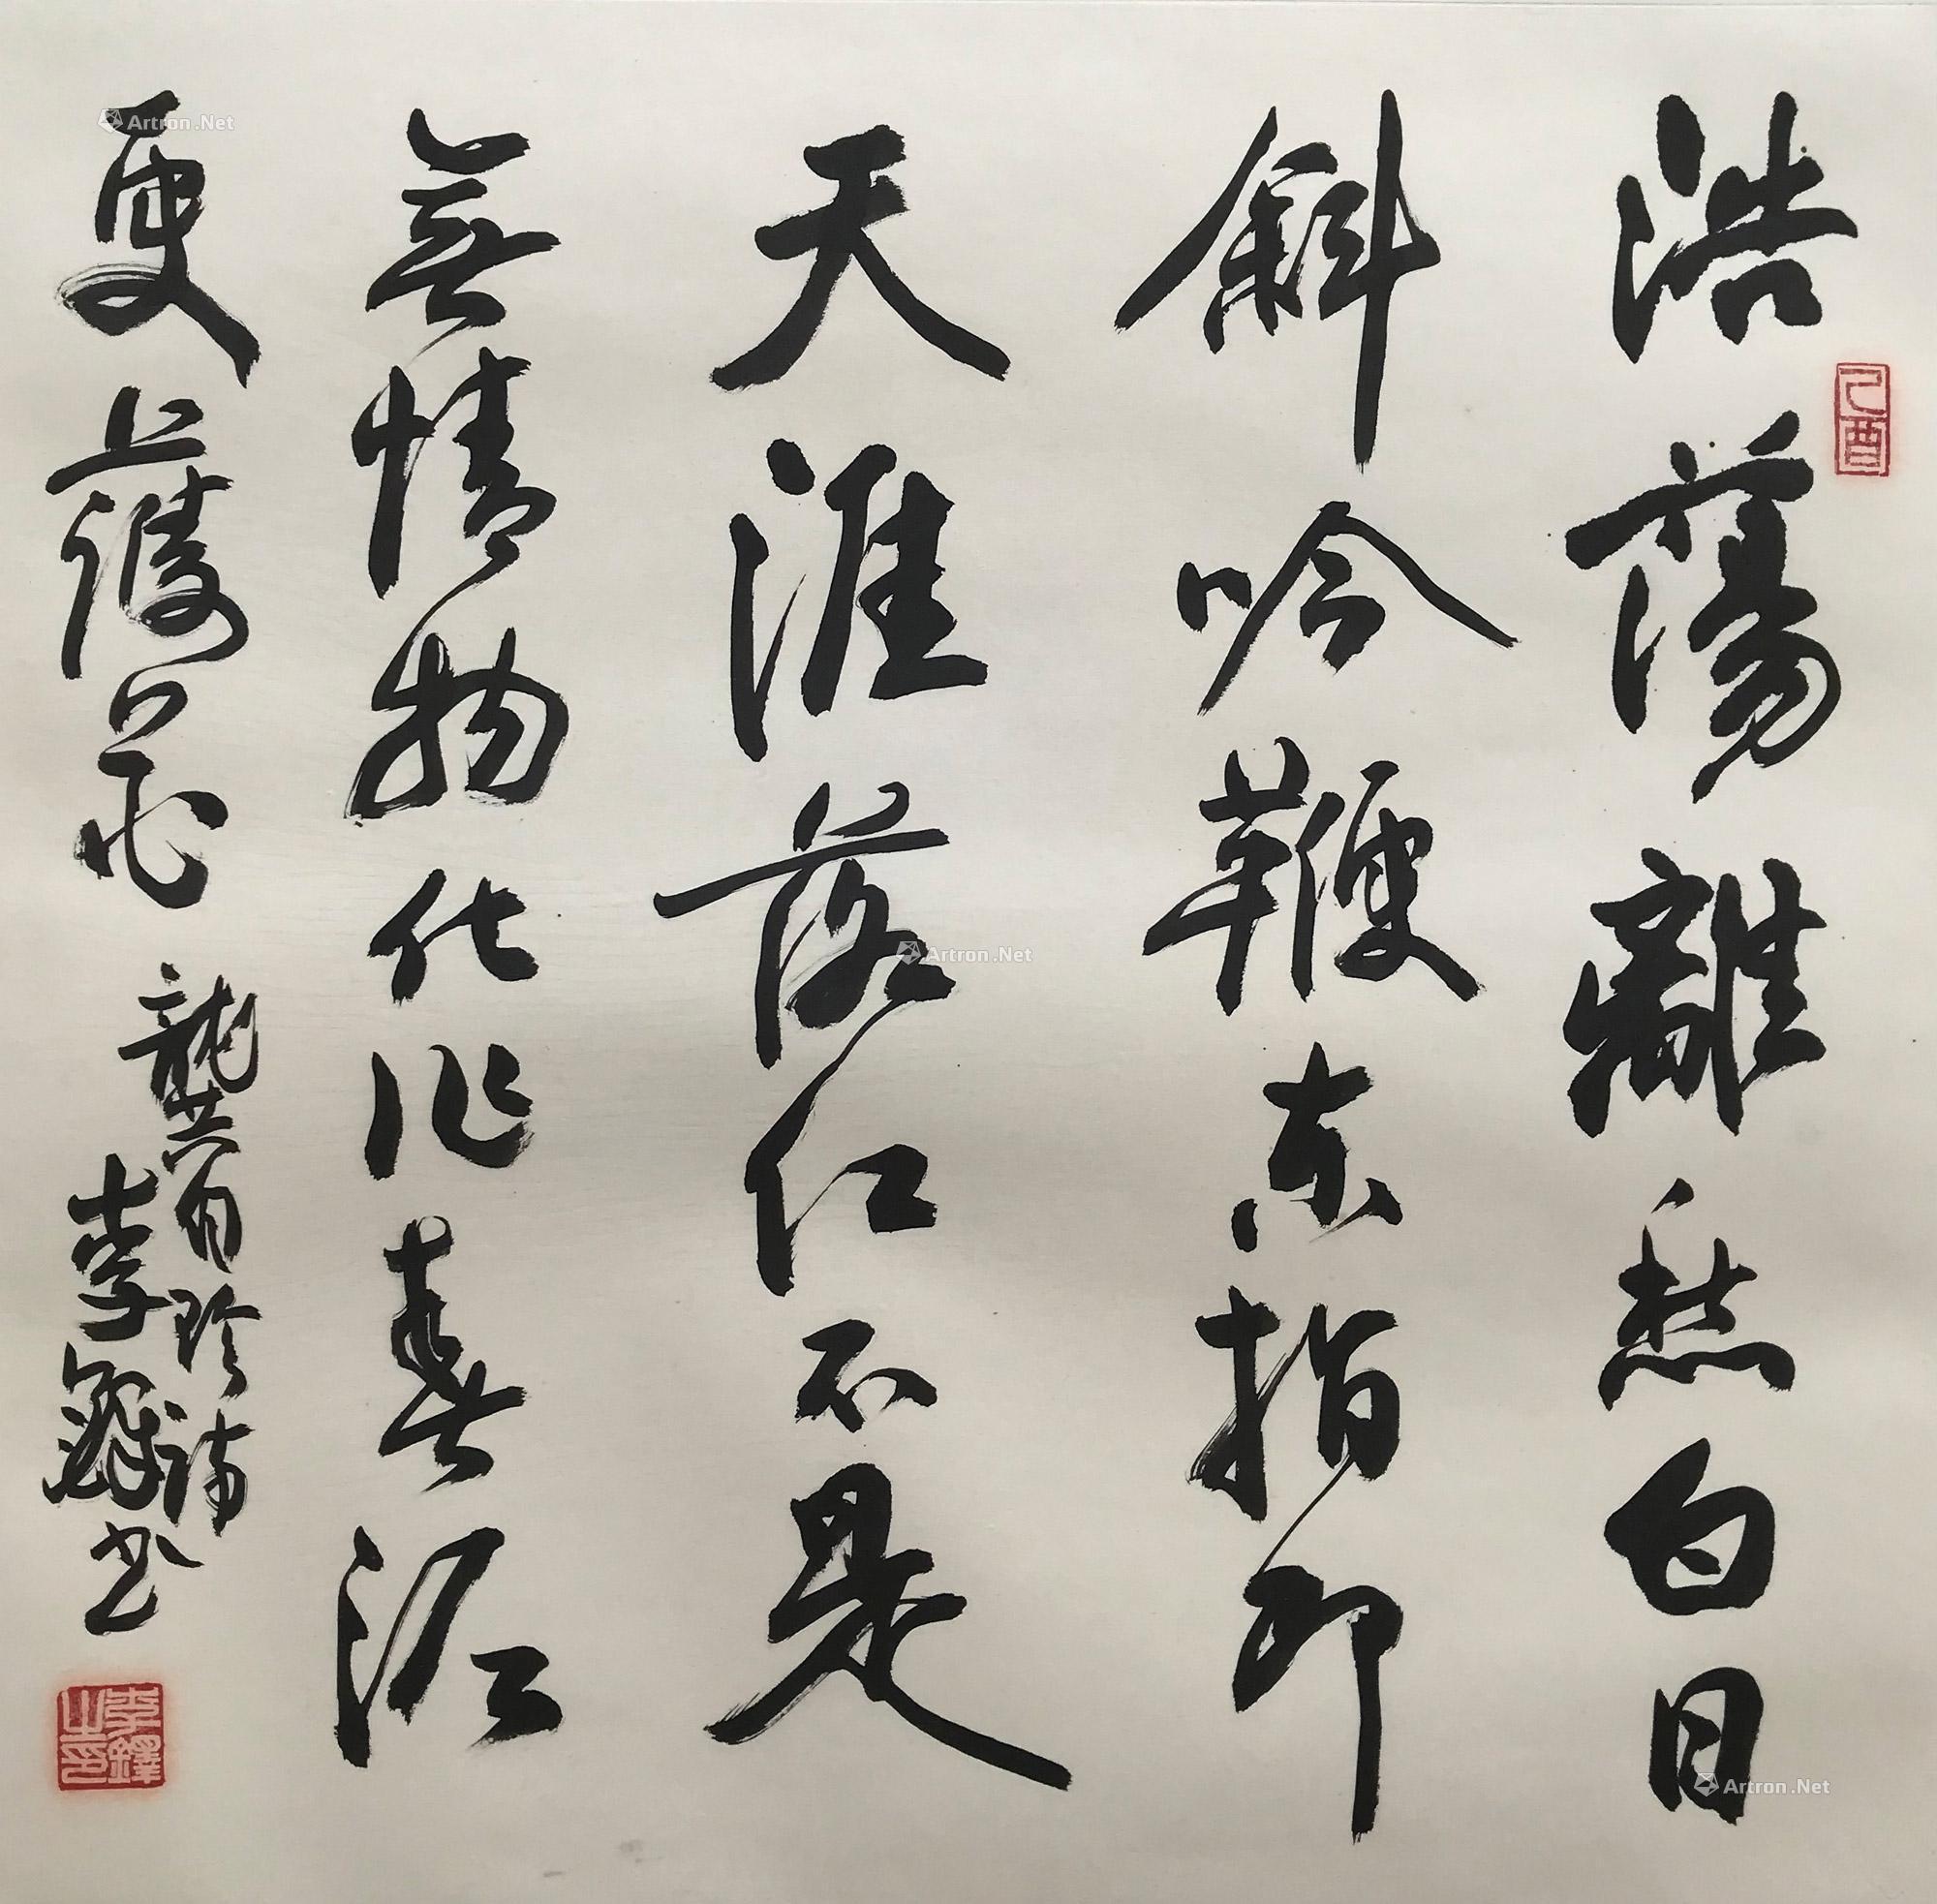 浩蕩離愁白日
斜吟鞭东指即
天涯落红不是
無情物化作春泥
更上護花
龔自珍诗
李鐸书
己酉
李鐸之印
Artron.Net
Artron.Net
Artron.Net